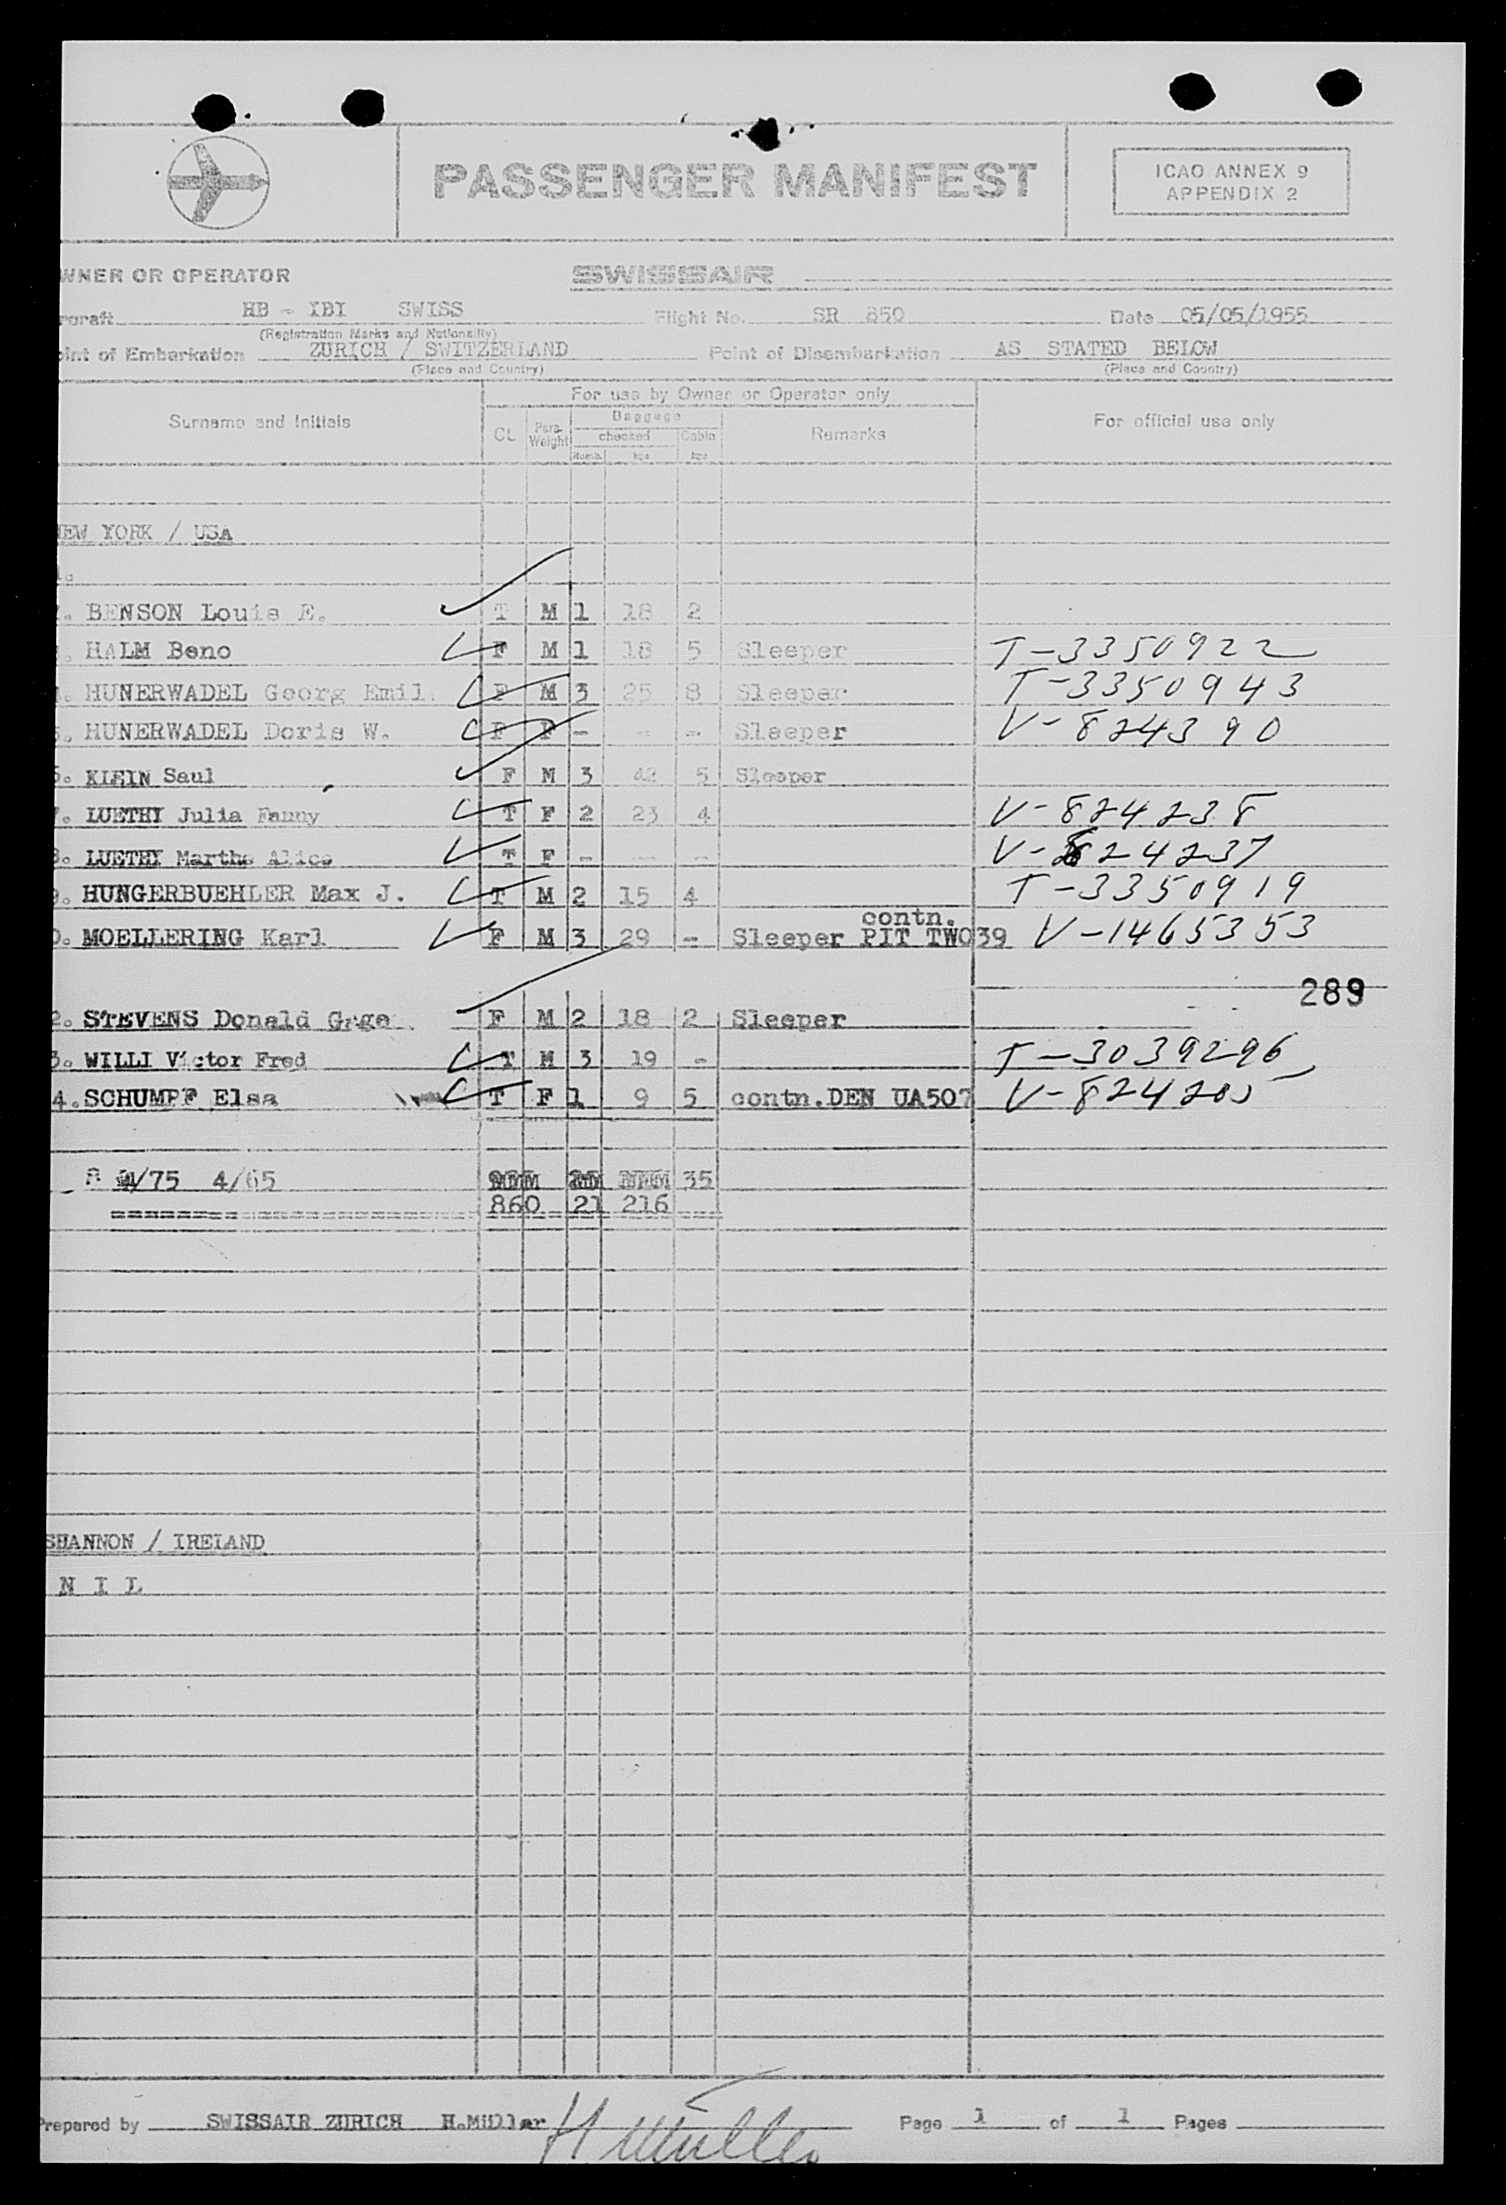 PASSENGER MANIFEST
ICAO ANNEX 9
APPENDIX 2
WNER OR OPERATOR SWISSAIR
rcraft HB - IBI SWISS Flight No. SR 850 Date 05/05/1955
(Registration Marks and Nationality)
oint of Embarkation ZURICH / SWITZERLAND Point of Disembarkation AS STATED BELOW
(Place and Country) (Place and Country)
For use by Owner or Operator only
Surname and Initials CL Pass Weight Baggage Remarks For official use only
checked Cabin
Numb. kgs kgs
NEW YORK / USA
. BENSON Louis E. T M 1 18 2
. HALM Beno F M 1 18 5 Sleeper T-3350922
. HUNERWADEL Georg Emil. F M 3 25 8 Sleeper T-3350943
. HUNERWADEL Doris W. F F - -- - Sleeper V-824390
. KLEIN Saul F M 3 42 5 Sleeper
. LUETHY Julia Fanny T F 2 23 4 V-824238
. LUETHY Martha Alice T F - -- - V-824237
. HUNGERBUEHLER Max J. T M 2 15 4 T-3350919
contn.
. MOELLERING Karl F M 3 29 - Sleeper PIT TWO39 V-1465353
289
2. STEVENS Donald Grge F M 2 18 2 Sleeper
3. WILLI Victor Fred T M 3 19 - T-3039296
4. SCHUMPF Elsa T F 1 9 5 contn.DEN UA507 V-824205
/75 4/65 35
860 21 216
SHANNON / IRELAND
N I L
Prepared by SWISSAIR ZURICH H.Müller H Müller Page 1 of 1 Pages